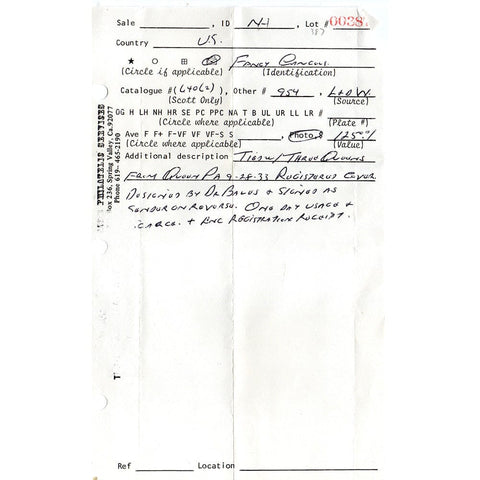 Sale , ID N-1 , Lot # 0038
387
Country U.S.
★ ○ ⊞ Fancy Cancels.
(Circle if applicable) (Identification)
Catalogue #(640(2) ), Other # 954 , L+DW
(Scott Only) (Source)
OG H LH NH HR SE PC PPC NA T B UL UR LL LR #
(Circle where applicable) (Plate #)
Ave F F+ F-VF VF VF-S S , Photo $ 125.
(Circle where applicable) (Value)
Additional description Tied w/ Three Queens
From Queen PA 9-28-33 Registered Cover
Designed by Dr Bales & Signed as
Sender on Reverse. One Day Usage &
Scarce. & Enc Registration Receipt.
PHILATELIC SERVICES
Box 236, Spring Valley, Ca. 92077
Phone 619-465-2190
T
Ref Location